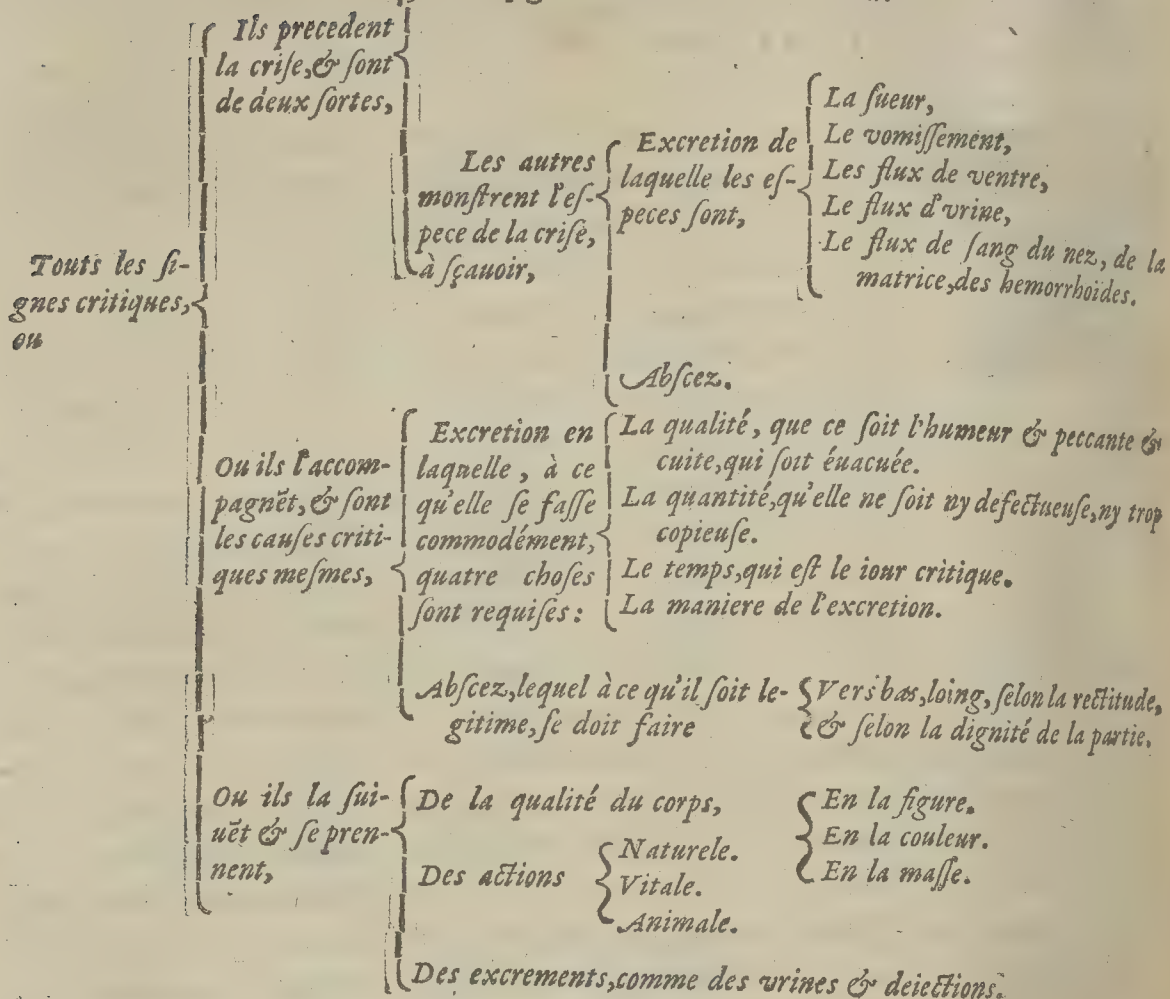 Ils precedent
la crise, & sont
de deux sortes,
Les autres
monstrent l'es-
pece de la crise,
à sçauoir,
Excretion de
laquelle les es-
peces sont,
La sueur,
Le vomissement,
Les flux de ventre,
Le flux d'vrine,
Le flux de sang du nez, de la
matrice, des hemorrhoïdes.
Touts les si-
gnes critiques,
ou
Abscez.
Ou ils l'accom-
pagnẽt, & sont
les causes criti-
ques mesmes,
Excretion en
laquelle, à ce
qu'elle se fasse
commodément,
quatre choses
sont requises:
La qualité, que ce soit l'humeur & peccante &
cuite, qui soit éuacuée.
La quantité, qu'elle ne soit ny defectueuse, ny trop
copieuse.
Le temps, qui est le iour critique.
La maniere de l'excretion.
Abscez, lequel à ce qu'il soit le-
gitime, se doit faire
Vers bas, loing, selon la rectitude,
& selon la dignité de la partie.
Ou ils la sui-
uẽt & se pren-
nent,
De la qualité du corps,
En la figure.
En la couleur.
En la masse.
Des actions
Naturele.
Vitale.
Animale.
Des excrements, comme des vrines & deiections.